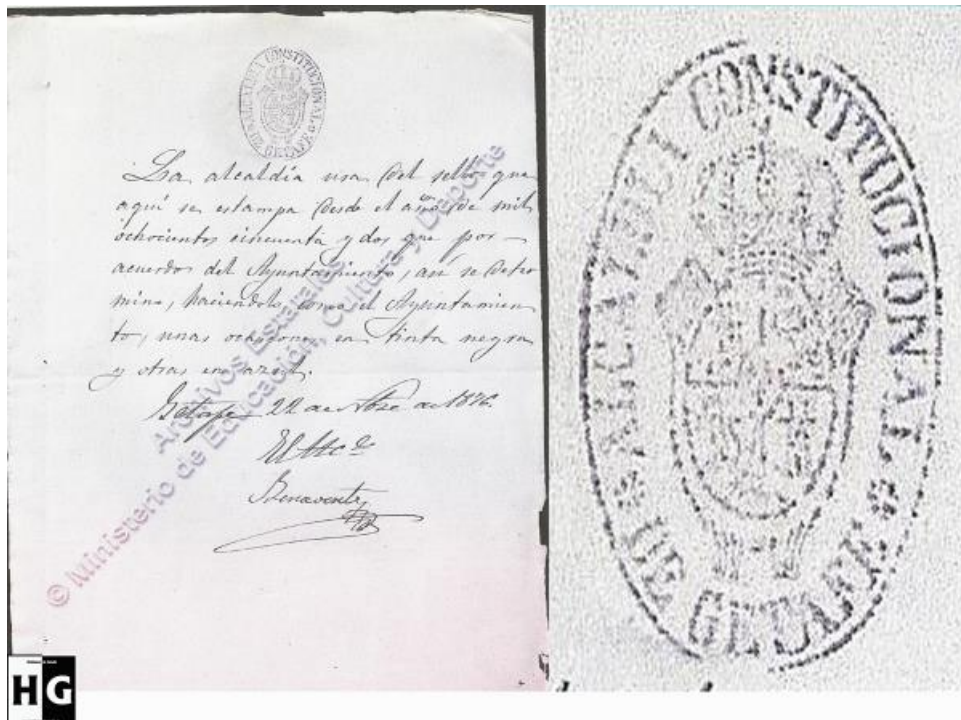 ALCALDIA CONSTITUCIONAL
DE GETAFE
La alcaldía usa del sello que
aquí se estampa desde el año de mil
ochocientos cincuenta y dos que por
acuerdo del Ayuntamiento, así se deter
mina, haciendolo, como el Ayuntamien
to, unas ocasiones en tinta negra
y otras en azul.
Getafe 22 de de 1876.
El Alc.de
Benavente
Archivos Estatales
© Ministerio de Educación, Cultura y Deporte
ALCALDIA CONSTITUCIONAL
DE GETAFE
HG